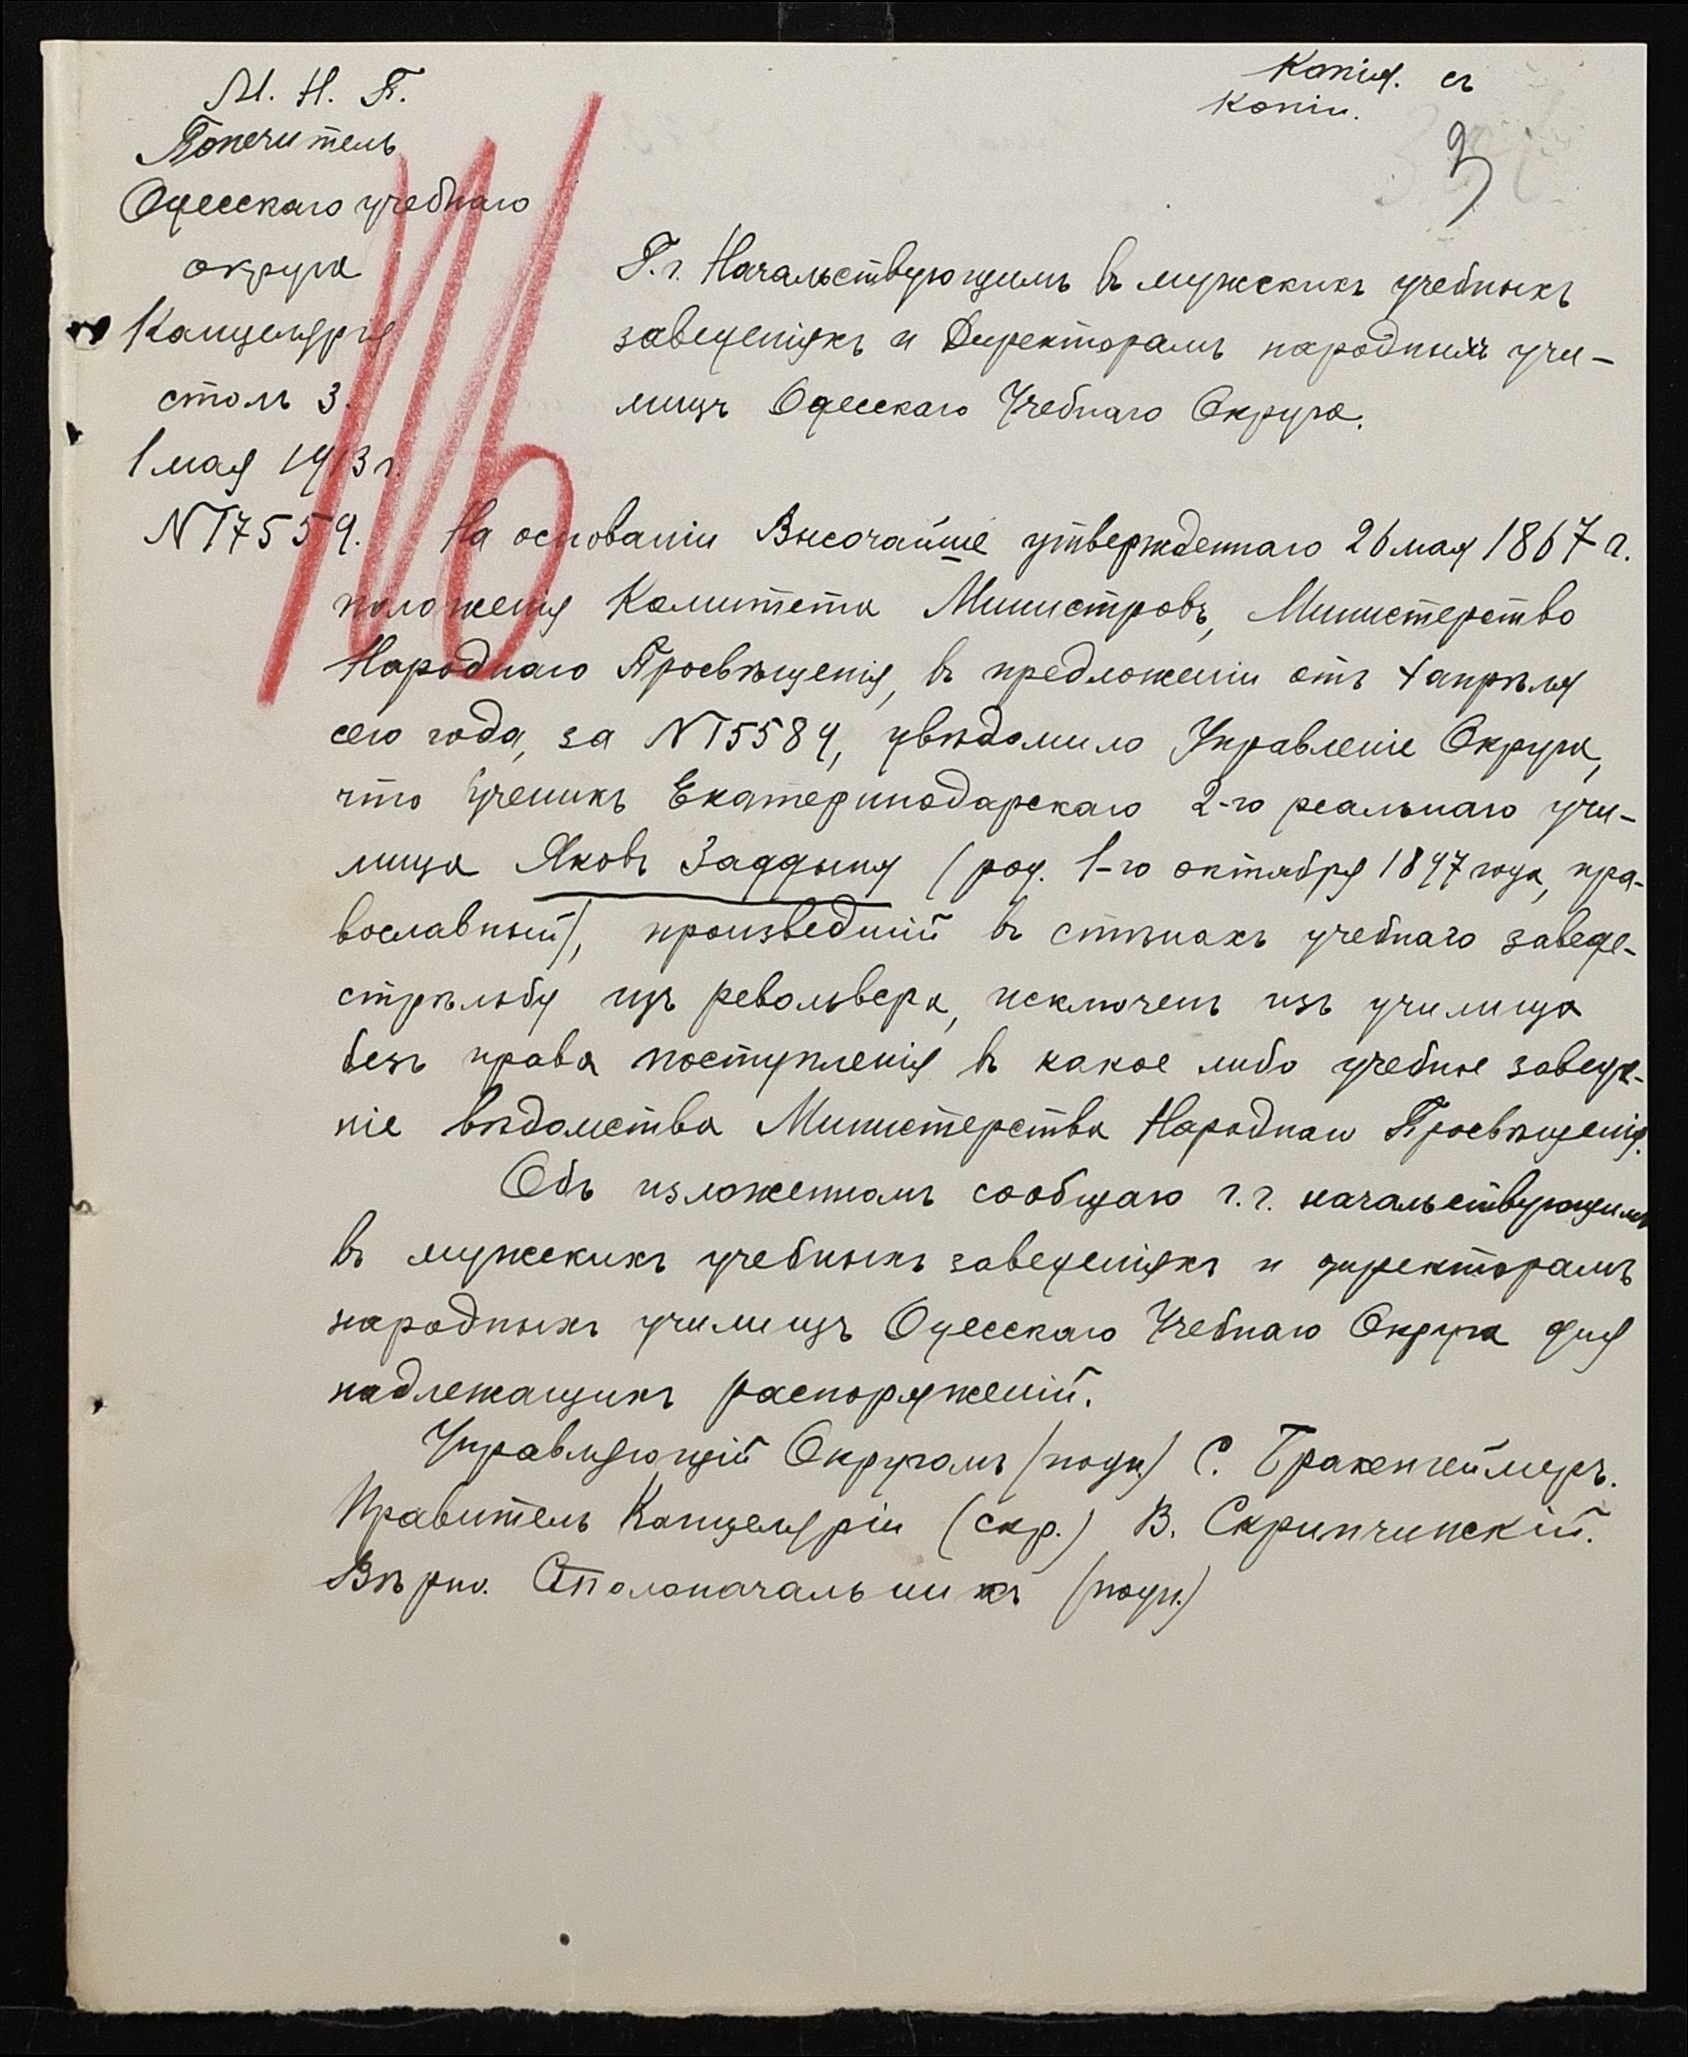 Копія. съ
копіи.
М. Н. П.
Попечитель
Одесскаго учебнаго
округа
Канцелярія
столъ 3.
1 мая 1913 г.
№ 17559.
Г.г. Начальствующимъ въ мужскихъ учебныхъ
заведеніяхъ и Директорамъ народныхъ учи-
лищъ Одесскаго Учебнаго Округа.
На основаніи Высочайше утвержденнаго 26 мая 1867 г.
положенія Комитета Министровъ, Министерство
Народнаго Просвѣщенія, въ предложеніи отъ 4 апрѣля
сего года, за № 15584, увѣдомило Управленіе Округа,
что ученикъ Екатеринодарскаго 2-го реальнаго учи-
лища Яковъ Заддыня (род. 1-го октября 1897 года, пра-
вославный), произведшій въ стѣнахъ учебнаго заведе-
стрѣльбу изъ револьвера, исключенъ изъ училища
безъ права поступленія въ какое либо учебное заведе-
ніе вѣдомства Министерства Народнаго Просвѣщенія.
Объ изложенномъ сообщаю г.г. начальствующимъ
въ мужскихъ учебныхъ заведеніяхъ и директорамъ
народныхъ училищъ Одесскаго Учебнаго Округа для
надлежащихъ распоряженій.
Управляющій Округомъ (подп.) С. Бракенгеймеръ.
Правитель Канцеляріи (скр.) В. Скрипчинскій.
Вѣрно. Столоначальникъ (подп.)